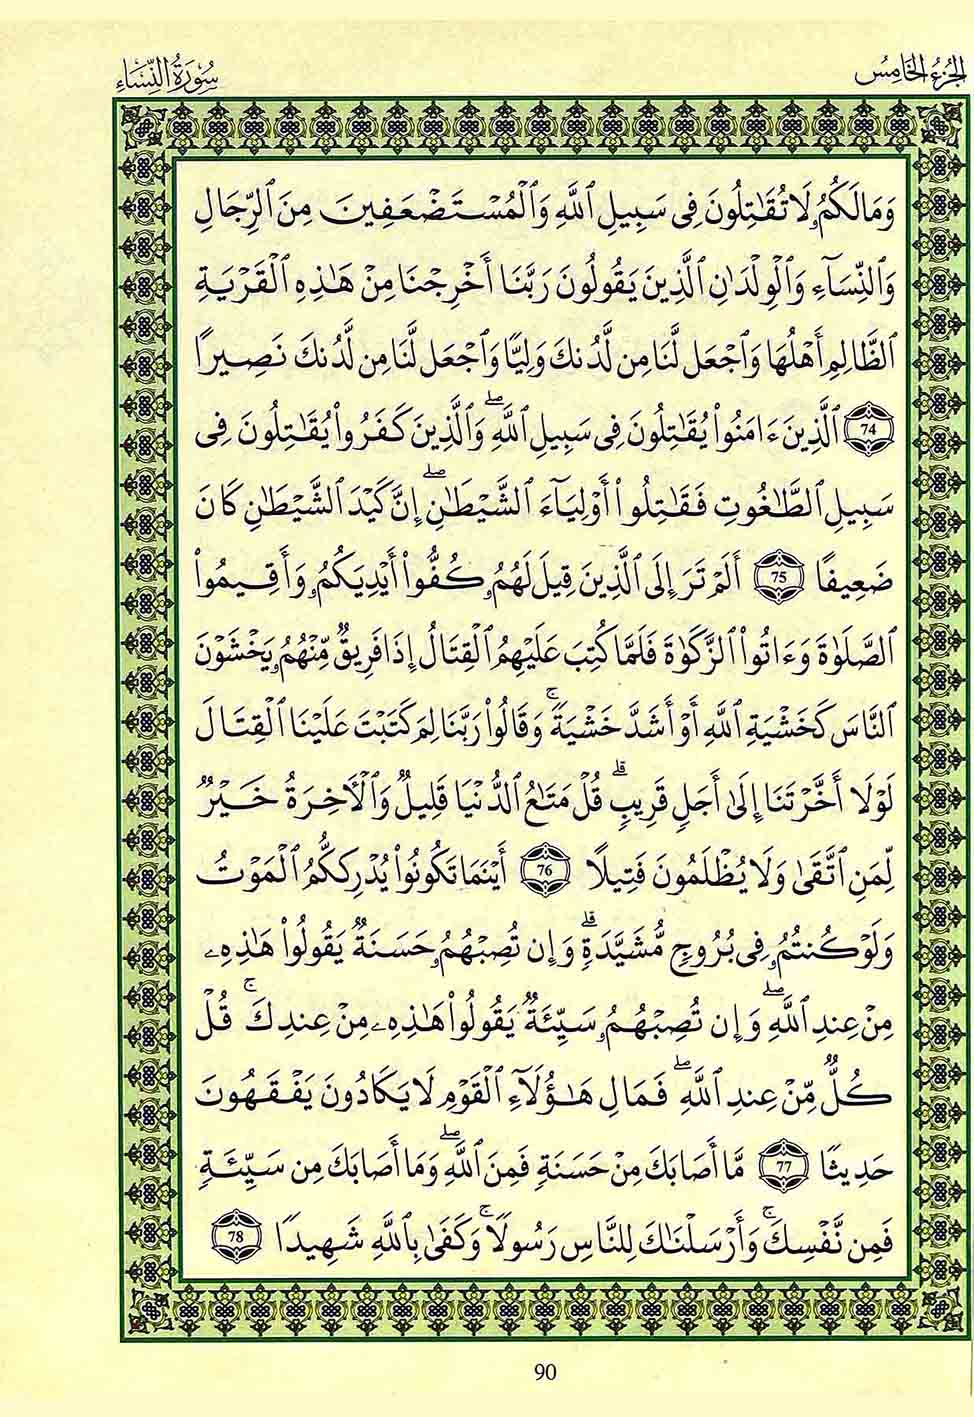 الجزء الخامس
سورة النساء
وَمَا لَكُمُۥ لَا تُقَٰتِلُونَ فِى سَبِيلِ ٱللَّهِ وَٱلْمُسْتَضْعَفِينَ مِنَ ٱلرِّجَالِ
وَٱلنِّسَآءِ وَٱلْوِلْدَٰنِ ٱلَّذِينَ يَقُولُونَ رَبَّنَا أَخْرِجْنَا مِنْ هَٰذِهِ ٱلْقَرْيَةِ
ٱلظَّالِمِ أَهْلُهَا وَٱجْعَل لَّنَا مِن لَّدُنكَ وَلِيًّا وَٱجْعَل لَّنَا مِن لَّدُنكَ نَصِيرًا
74 ٱلَّذِينَ ءَامَنُوا۟ يُقَٰتِلُونَ فِى سَبِيلِ ٱللَّهِۖ وَٱلَّذِينَ كَفَرُوا۟ يُقَٰتِلُونَ فِى
سَبِيلِ ٱلطَّٰغُوتِ فَقَٰتِلُوا۟ أَوْلِيَآءَ ٱلشَّيْطَٰنِۖ إِنَّ كَيْدَ ٱلشَّيْطَٰنِ كَانَ
ضَعِيفًا 75 أَلَمْ تَرَ إِلَى ٱلَّذِينَ قِيلَ لَهُمُۥ كُفُّوا۟ أَيْدِيَكُمُۥ وَأَقِيمُوا۟
ٱلصَّلَوٰةَ وَءَاتُوا۟ ٱلزَّكَوٰةَ فَلَمَّا كُتِبَ عَلَيْهِمُ ٱلْقِتَالُ إِذَا فَرِيقٌ مِّنْهُمُۥ يَخْشَوْنَ
ٱلنَّاسَ كَخَشْيَةِ ٱللَّهِ أَوْ أَشَدَّ خَشْيَةًۚ وَقَالُوا۟ رَبَّنَا لِمَ كَتَبْتَ عَلَيْنَا ٱلْقِتَالَ
لَوْلَا أَخَّرْتَنَا إِلَىٰ أَجَلٍ قَرِيبٍۗ قُلْ مَتَٰعُ ٱلدُّنْيَا قَلِيلٌ وَٱلْأَخِرَةُ خَيْرٌ
لِّمَنِ ٱتَّقَىٰ وَلَا يُظْلَمُونَ فَتِيلًا 76 أَيْنَمَا تَكُونُوا۟ يُدْرِككُّمُ ٱلْمَوْتُ
وَلَوْ كُنتُمُۥ فِى بُرُوجٍ مُّشَيَّدَةٍۗ وَإِن تُصِبْهُمُۥ حَسَنَةٌ يَقُولُوا۟ هَٰذِهِۦ
مِنْ عِندِ ٱللَّهِۖ وَإِن تُصِبْهُمُۥ سَيِّئَةٌ يَقُولُوا۟ هَٰذِهِۦ مِنْ عِندِكَۚ قُلْ
كُلٌّ مِّنْ عِندِ ٱللَّهِۖ فَمَالِ هَٰؤُلَآءِ ٱلْقَوْمِ لَا يَكَادُونَ يَفْقَهُونَ
حَدِيثًا 77 مَّا أَصَابَكَ مِنْ حَسَنَةٍ فَمِنَ ٱللَّهِۖ وَمَا أَصَابَكَ مِن سَيِّئَةٍ
فَمِن نَّفْسِكَۚ وَأَرْسَلْنَٰكَ لِلنَّاسِ رَسُولًاۚ وَكَفَىٰ بِٱللَّهِ شَهِيدًا 78
90